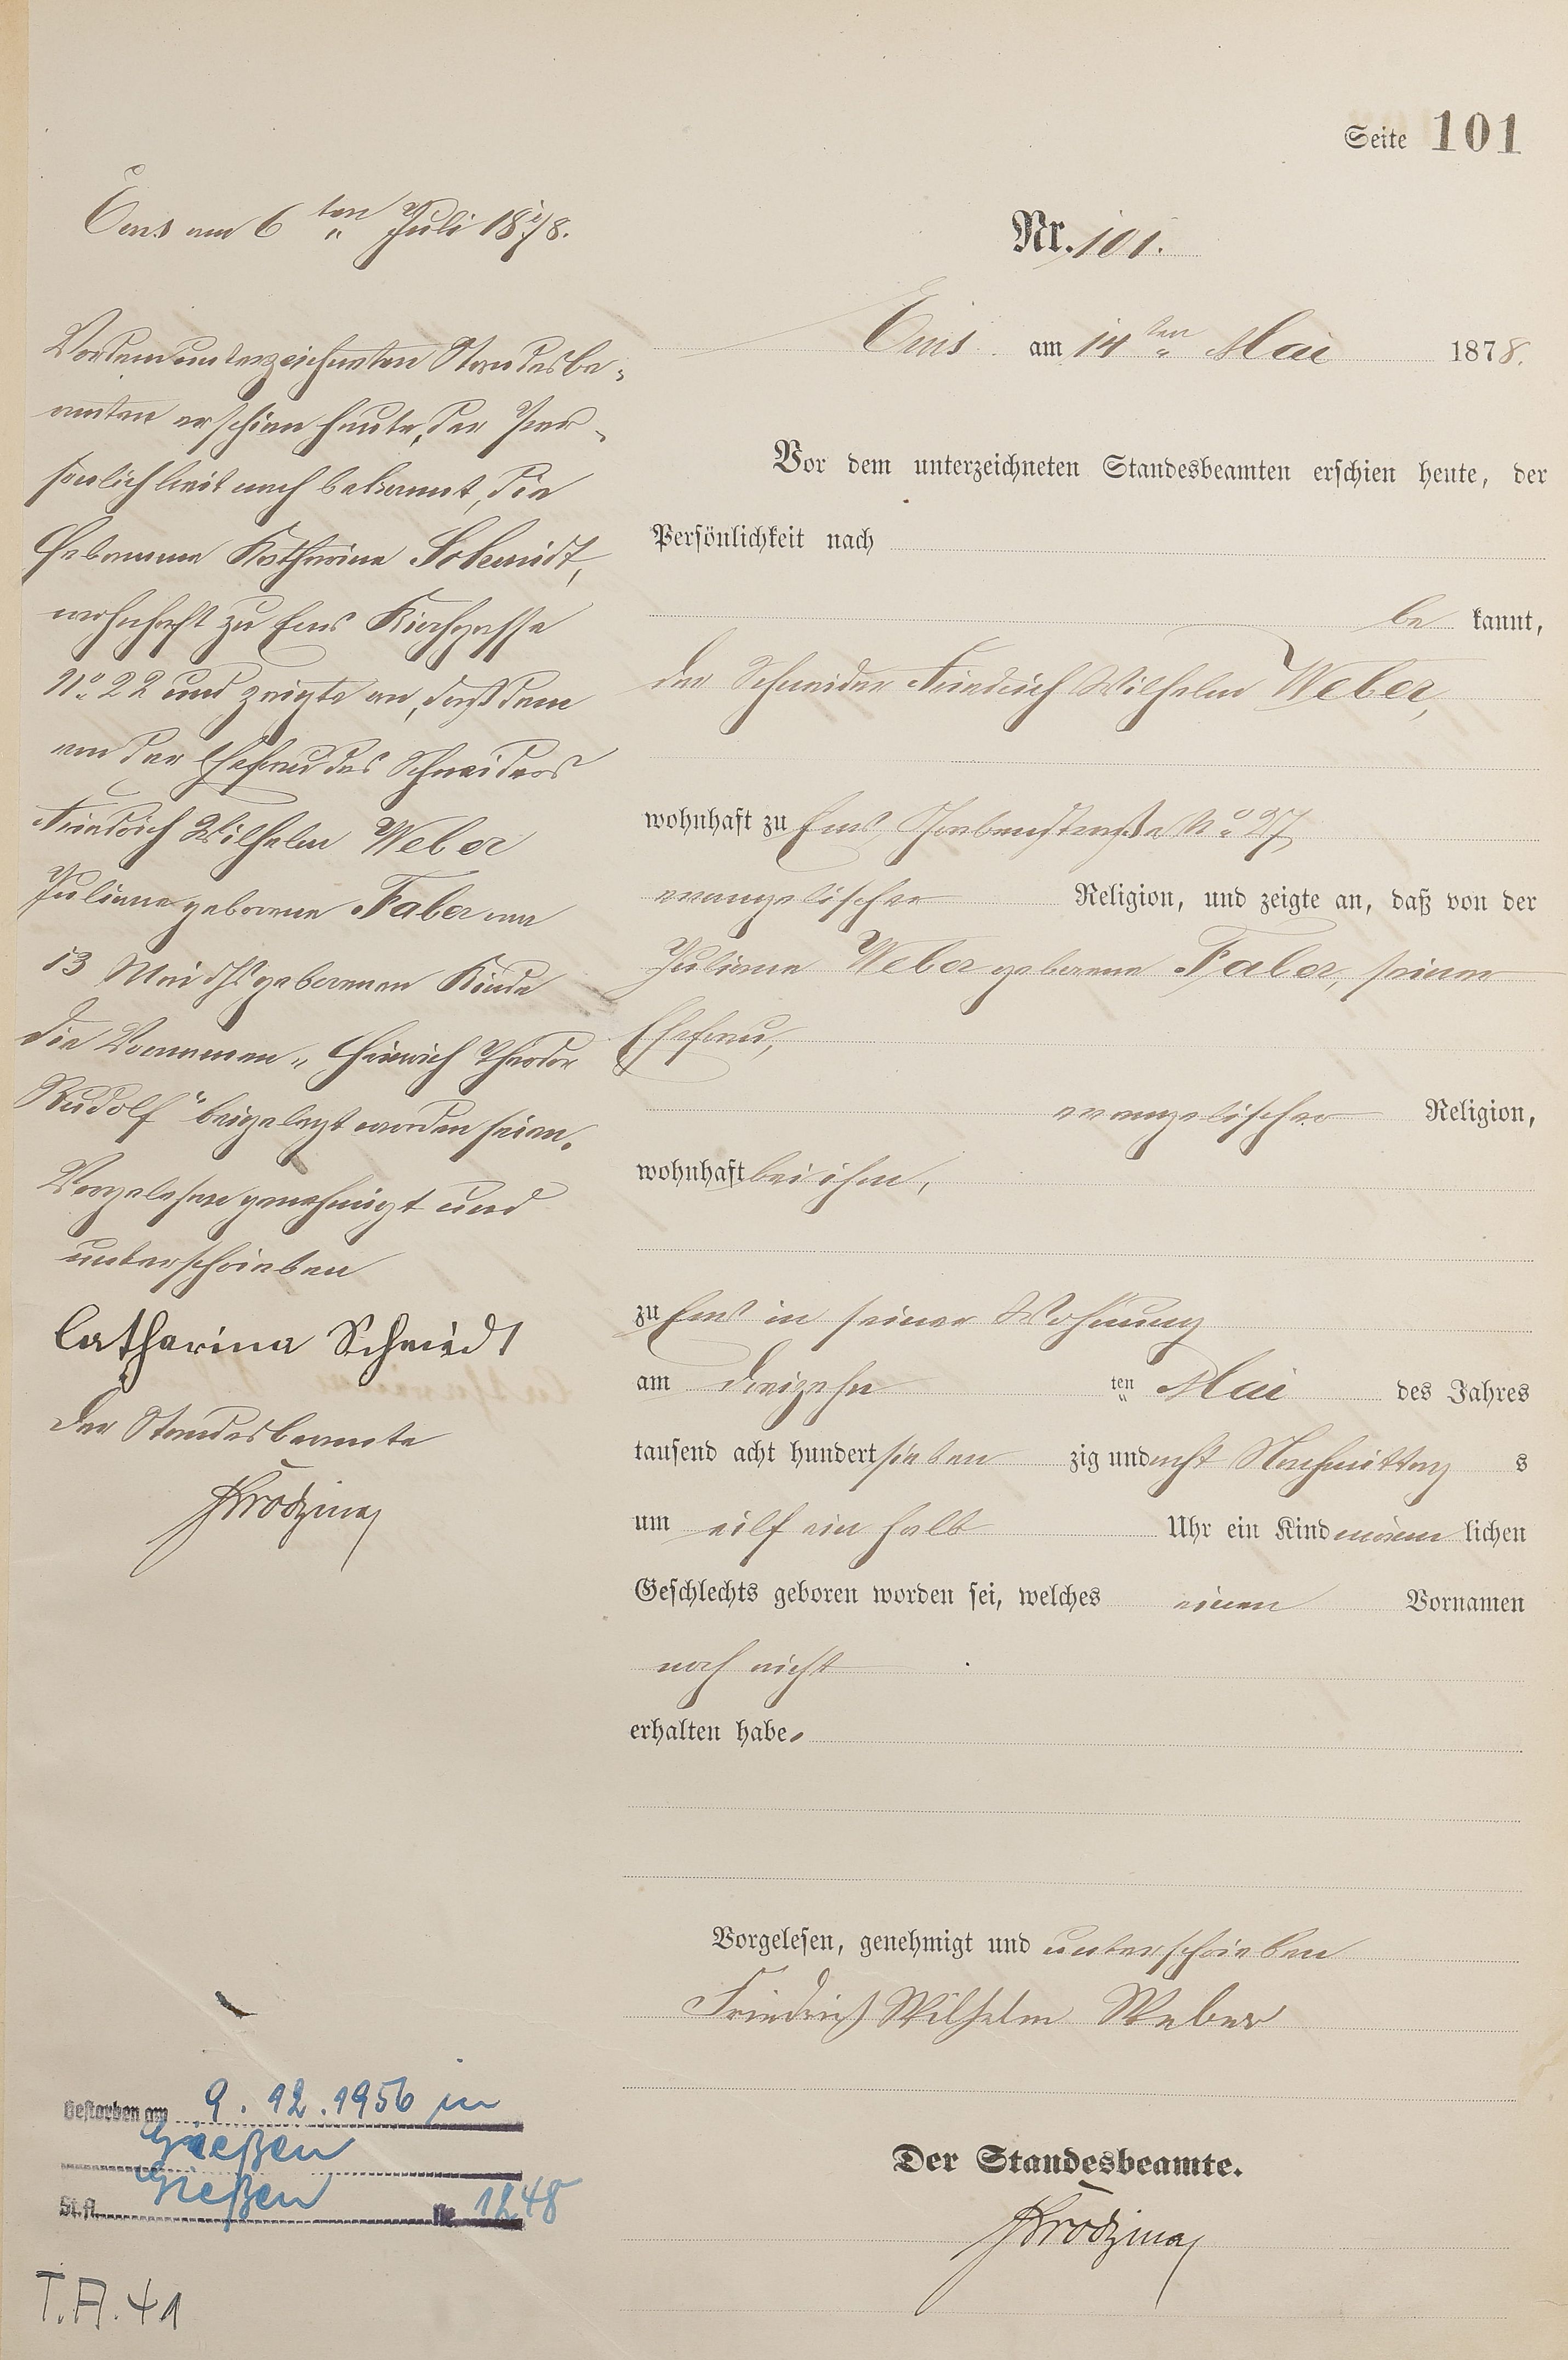 Seite 101
Ems am 6ten Juli 1878.
Vor dem unterzeichneten Standesbe-
amten erschien heute, der Per-
sönlichkeit nach bekannt, die
Hebamme Katharina Schmidt,
wohnhaft zu Ems Kirchgasse
No 22 und zeigte an, daß dem
von der Ehefrau des Schneiders
Friedrich Wilhelm Weber
Juliane geborene Faber am
13 Mai geborenen Kinde
die Vornamen „Heinrich Theodor
Rudolf“ beigelegt worden seien.
Vorgelesen genehmigt und
unterschrieben
Catharina Schmidt
Der Standesbeamte
Gestorben am 9.12.1956 in
Gießen
St.A. Gießen Nr. 1248
T.A. 41
Nr. 101.
Ems am 14ten Mai 1878.
Vor dem unterzeichneten Standesbeamten erschien heute, der
Persönlichkeit nach
be kannt,
der Schneider Friedrich Wilhelm Weber,
wohnhaft zu Ems, Grabenstraße No 27,
evangelischer Religion, und zeigte an, daß von der
Juliane Weber geborene Faber, seiner
Ehefrau,
evangelischer Religion,
wohnhaft bei ihm,
zu Ems in seiner Wohnung
am dreizehn ten Mai des Jahres
tausend acht hundert sieben zig und acht Nachmittag s
um eilf ein halb Uhr ein Kind männ lichen
Geschlechts geboren worden sei, welches einen Vornamen
noch nicht
erhalten habe.
Vorgelesen, genehmigt und unterschrieben
Friedrich Wilhelm Weber
Der Standesbeamte.